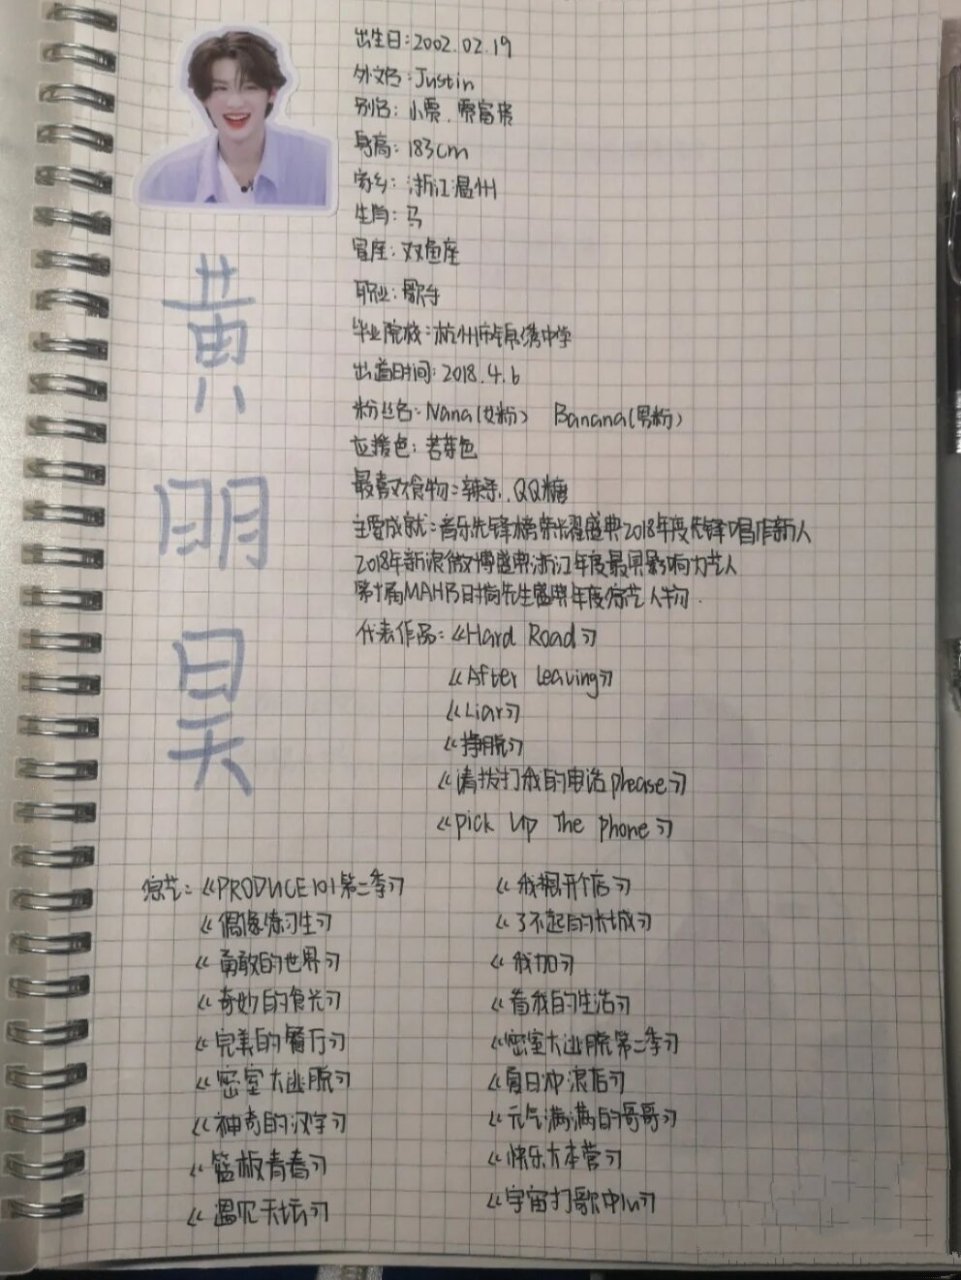 出生日:2002.02.19
外文名:Justin
别名:小贾、贾富贵
身高:183cm
家乡:浙江温州
生肖:马
星座:双鱼座
职业:歌手
毕业院校:杭州市锦绣中学
出道时间:2018.4.6
粉丝名:Nana(女粉) Banana(男粉)
应援色:若芽色
最喜欢食物:辣条、QQ糖
主要成就:音乐先锋榜荣耀盛典2018年度先锋唱作新人
2018年新浪微博盛典浙江年度最具影响力艺人
第十届MAHB时尚先生盛典年度综艺人物.
代表作品:《Hard Road》
《After Leaving》
《Liar》
《挣脱》
《请拨打我的电话please》
《Pick Up The phone》
黄
明
昊
综艺:《PRODUCE101第二季》
《偶像练习生》
《勇敢的世界》
《奇妙的食光》
《完美的餐厅》
《密室大逃脱》
《神奇的汉字》
《篮板青春》
《遇见天坛》
《我想开个店》
《了不起的长城》
《我加》
《看我的生活》
《密室大逃脱第二季》
《夏日冲浪店》
《元气满满的哥哥》
《快乐大本营》
《宇宙打歌中心》